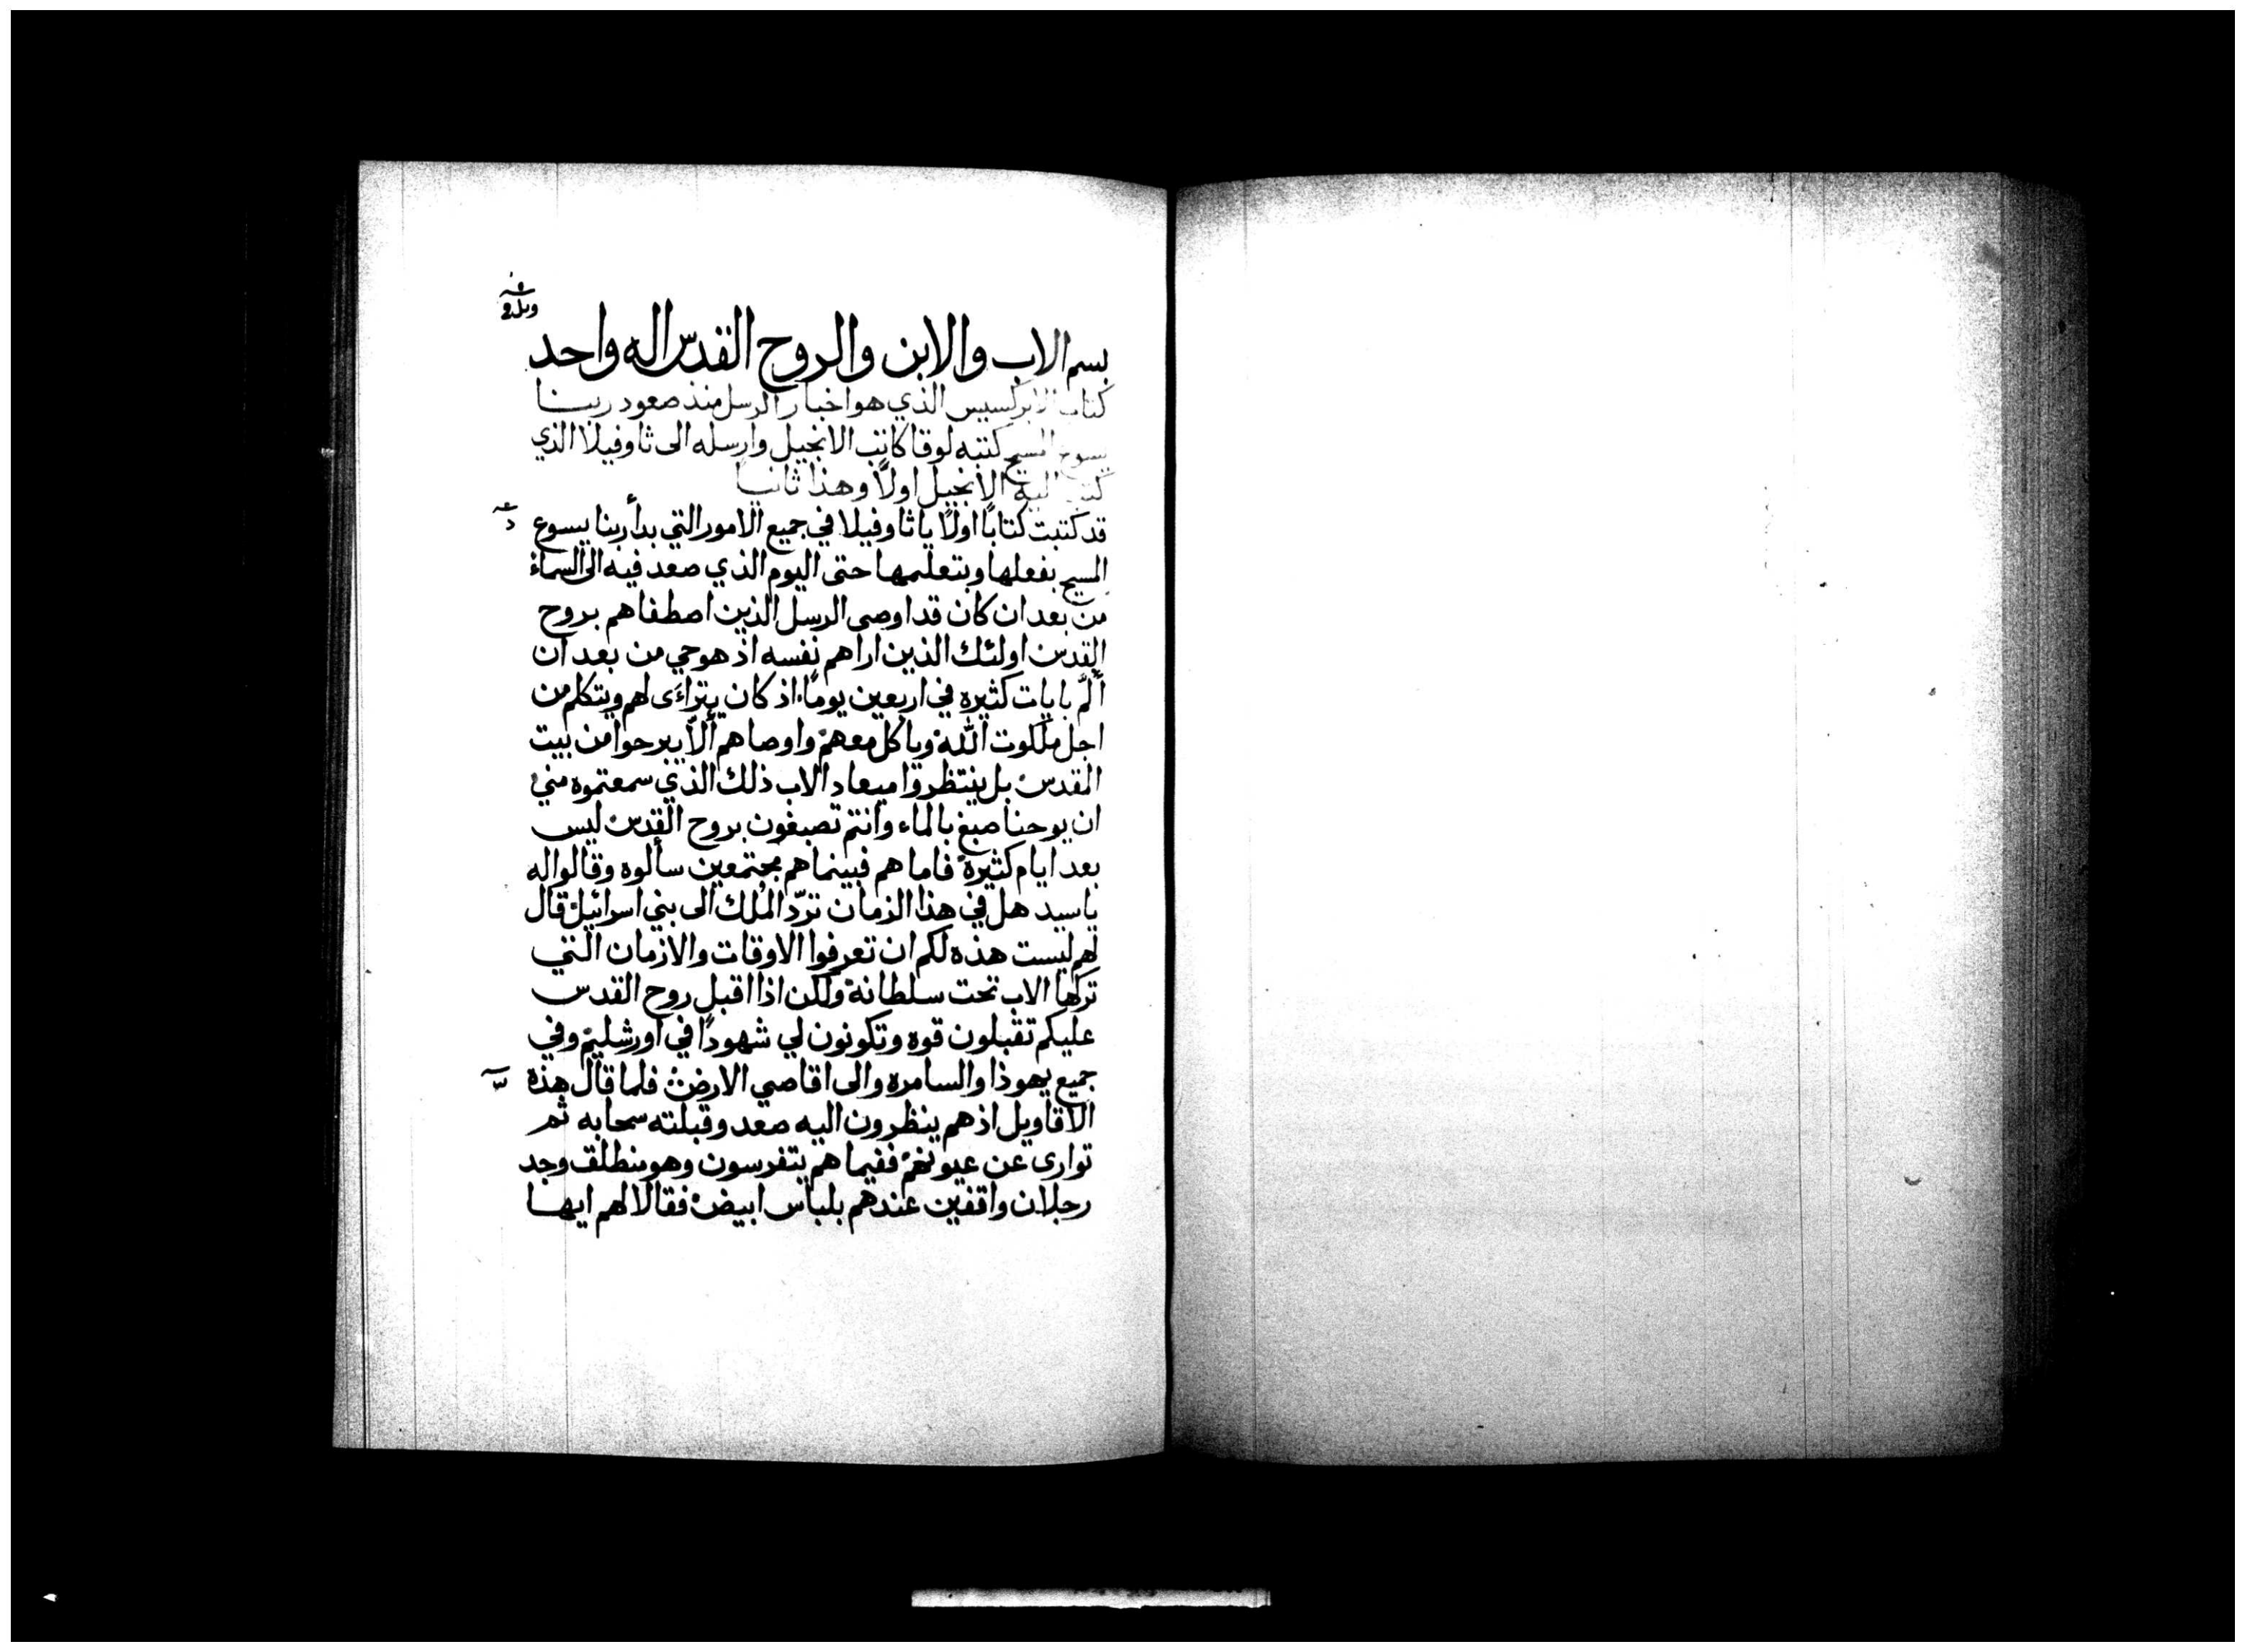 بسم الاب والابن والروح القدس اله واحد
كتاب الابركسيس الذي هو اخبار الرسل منذ صعود ربنا
يسوع المسيح كتبه لوقا كاتب الانجيل وارسله الى ثاوفيلا الذي
كتب اليه الانجيل اولاً وهذا ثانيا
قد كتبت كتابًا اولًا يا ثاوفيلا في جميع الامور التي بدأ ربنا يسوع
المسيح بفعلها وبتعليمها حتى اليوم الذي صعد فيه الى السماء
من بعد ان كان قد اوصى الرسل الذين اصطفاهم بروح
القدس اولئك الذين اراهم نفسه اذ هو حي من بعد ان
ألَّم بايات كثيره في اربعين يومًا اذ كان يتراءَى لهم ويتكلم من
اجل ملكوت الله وياكل معهم واوصاهم ألّا يبرحوا من بيت
المقدس بل ينتظروا ميعاد الاب ذلك الذي سمعتموه مني
ان يوحنا صبغ بالماء وانتم تصبغون بروح القدس ليس
بعد ايام كثيرة فاما هم فبينما هم مجتمعين سألوه وقالوا له
يا سيد هل في هذا الزمان تردّ المُلك الى بني اسرائيل قال
لهم ليست هذه لكم ان تعرفوا الاوقات والازمان التي
تركها الاب تحت سلطانه ولكن اذا اقبل روح القدس
عليكم تقبلون قوه وتكونون لي شهودًا في اورشليم وفي
جميع يهوذا والسامره والى اقاصي الارض فلما قال هذه
الاقاويل اذ هم ينظرون اليه صعد وقبلته سحابه ثم
توارى عن عيونهم ففيما هم يتفرسون وهو منطلق وجد
رجلان واقفين عندهم بلباس ابيض فقالا لهم ايها